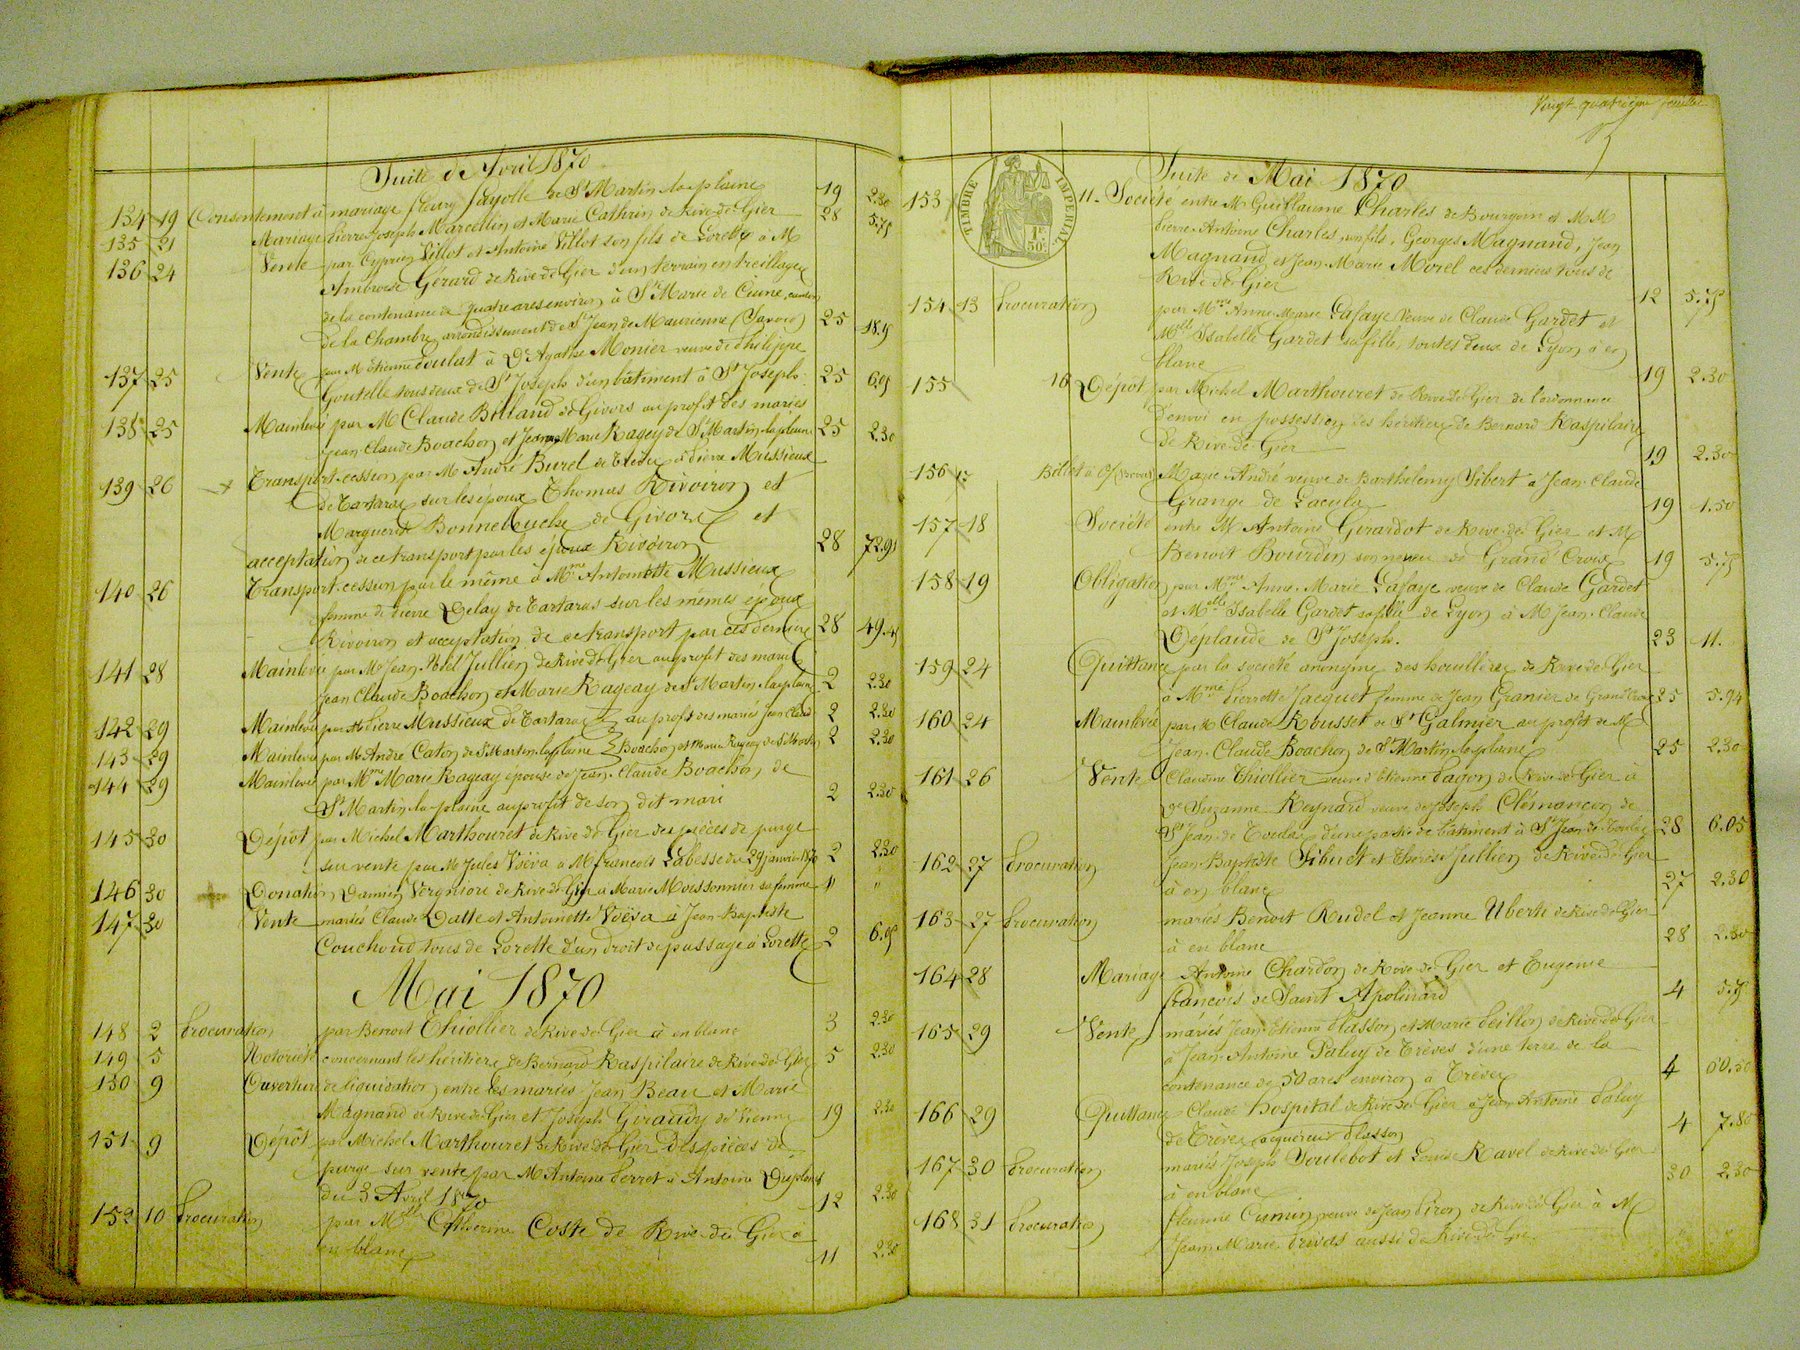 Suite de Avril 1870
134 19 Consentement à mariage fleury fayolle de St Martin la plaine 19 2.30
135 21 Mariage Pierre Joseph Marcellin et Marie Cathrin de Rive de Gier 28 5.75
136 24 Vente par Cyprien Villot et Antoine Villot son fils de Lorette à M
Ambroise Gérard de Rive de Gier d'un terrain en treillage
de la contenance de quatre ares environ à Ste Marie de Cuine, canton
de la Chambre arrondissement de St Jean de Maurienne (Savoie) 25 18.
137 25 Vente par M Etienne Poulat à De Agathe Monier veuve de Philippe
Goutelle tous deux de St Joseph d'un bâtiment à St Joseph 25 6.05
138 25 Mainlevée par M Claude Billand de Givors au profit des mariés
Jean Claude Boachon et Jeanne Marie Ragey de St Martin la plaine 25 2.30
139 26 Transport cession par M André Burel de Trèdu à Pierre Mussieux
de Tartaras sur les époux Thomas Rivoiron et
Marguerite Bonnebouche de Givors et
acceptation de ce transport par les époux Rivoiron 28 72.95
140 26 Transport cession par le même à Mme Antoinette Mussieux
femme de Pierre Delay de Tartaras sur les mêmes époux
Rivoiron et acceptation de ce transport par ces derniers 28 49.45
141 28 Mainlevée par M Jean Noel Jullien de Rive de Gier au profit des mariés
Jean Claude Boachon et Marie Rageay de St Martin la plaine 2 2.30
142 29 Mainlevée par M Pierre Mussieux de Tartaras au profit des mariés Jean Claude 2 2.30
143 29 Mainlevée par M André Caton de St Martin la plaine Boachon et Marie Rageay de St Martin 2 2.30
144 29 Mainlevée par Mme Marie Rageay épouse de Jean Claude Boachon de
St Martin la plaine au profit de son dit mari 2 2.30
145 30 Dépôt par Michel Marthouret de Rive de Gier des pièces de purge
sur vente par M Jules Voëva à M francois Labesse du 29 janvier 1870 2 2.30
146 30 Donation Damien Vergniory de Rive de Gier à Marie Moissonnier sa femme " "
147 30 Vente mariés Claude Datte et Antoinette Voëva à Jean Baptiste
Couchoud tous de Lorette d'un droit de passage à Lorette 2 6.05
Mai 1870
148 2 Procuration par Benoit Thiollier de Rive de Gier à en blanc 3 2.30
149 5 Notoriété concernant les héritiers de Bernard Raspilaire de Rive de Gier 5 2.30
150 9 Ouverture de liquidation entre les mariés Jean Beau et Marie
Magnand de Rive de Gier et Joseph Giraudy de Vienne 19 2.30
151 9 Dépôt par Michel Marthouret de Rive de Gier des pièces de
purge sur vente par M Antoine Perret à Antoine Duplomb
du 3 Avril 1870 12 2.30
152 10 Procuration par Mlle Catherine Coste de Rive de Gier à
en blanc 11 2.30
Vingt quatrième feuillet
Suite de Mai 1870
TIMBRE IMPERIAL
1F 50C
153 11 Société entre M Guillaume Charles de Bourgoin et MM
Pierre Antoine Charles, son fils, Georges Magnand, Jean
Magnand et Jean Marie Morel ces derniers tous de
Rive de Gier 12 5.75
154 13 Procuration par Mme Anne Marie Lafaye veuve de Claude Gardet et
Mlle Isabelle Gardet sa fille, toutes deux de Lyon à en
blanc 19 2.30
155 16 Dépôt par Michel Marthouret de Rive de Gier de l'ordonnance
d'envoi en possession des héritiers de Bernard Raspilaire
de Rive de Gier 19 2.30
156 17 Billet à O/ (Brevet) Marie André veuve de Barthelemy Sibert à Jean Claude
Grange de Lacula 19 1.50
157 18 Société entre M Antoine Girardot de Rive de Gier et M
Benoit Bourdin son neveu de Grand Croix 19 5.75
158 19 Obligation par Mme Anne Marie Lafaye veuve de Claude Gardet
et Mlle Isabelle Gardet sa fille de Lyon à M Jean Claude
Déplaude de St Joseph. 23 11.
159 24 Quittance par la société anonyme des houillères de Rive de Gier
à Mme Pierrotte Jacquet femme de Jean Granier de Grand Croix 25 5.94
160 24 Mainlevée par M Claude Rousset de St Galmier au profit de M
Jean Claude Boachon de St Martin la plaine 25 2.30
161 26 Vente Claudine Thiollier veuve d'Etienne Pagon de Rive de Gier à
De Suzanne Reynard veuve de Joseph Clémançon de
St Jean de Toulas d'une partie de bâtiment à St Jean de Toulas 28 6.05
162 27 Procuration Jean Baptiste Sibuet et Thérèse Jullien de Rive de Gier
à en blanc 27 2.30
163 27 Procuration mariés Benoit Rudel et Jeanne Uberti de Rive de Gier
à en blanc 28 2.30
164 28 Mariage Antoine Chardon de Rive de Gier et Eugenie
francois de Saint Apolinard 4 5.75
165 29 Vente mariés Jean Etienne Plasson et Marie Peillon de Rive de Gier
à Jean Antoine Paluy de Trèves d'une terre de la
contenance de 50 ares environ à Trèves 4 60.50
166 29 Quittance Claude hospital de Rive de Gier à Jean Antoine Paluy
de Trèves acquéreur Plasson 4 7.80
167 30 Procuration mariés Joseph Soulebot et Louise Ravel de Rive de Gier
à en blanc 30 2.30
168 31 Procuration fleurie Cumin veuve de Jean Piron de Rive de Gier à M
Jean Marie Privas aussi de Rive de Gier